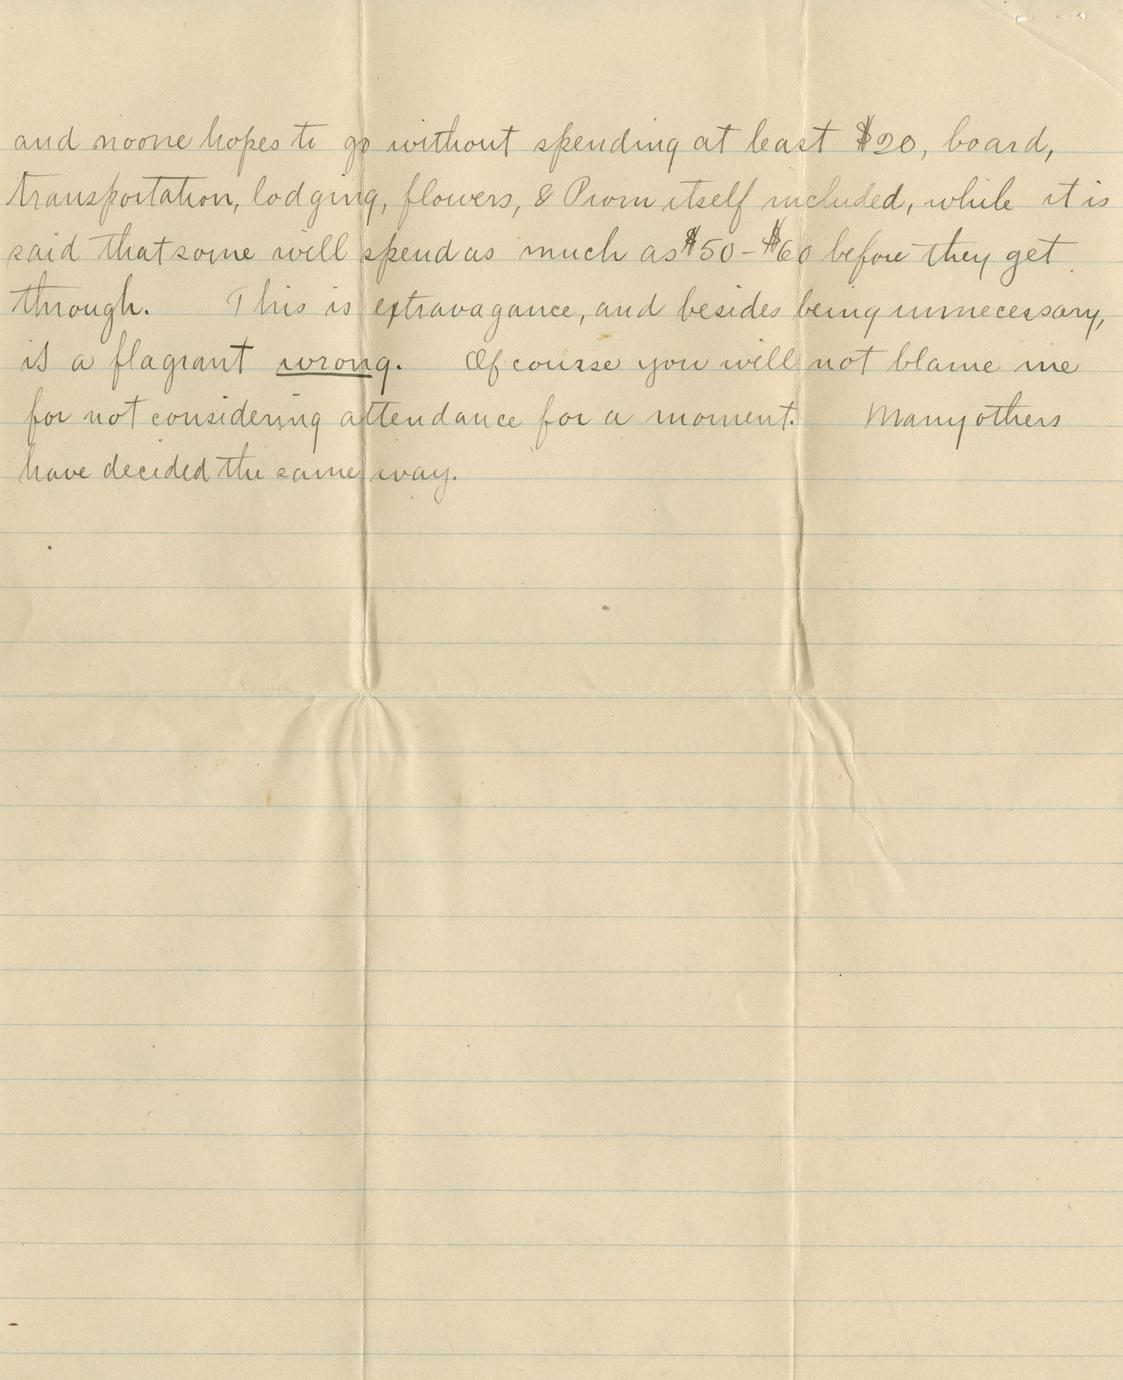 and noone hopes to go without spending at least $20, board,
transportation, lodging, flowers, & Prom itself included, while it is
said that some will spend as much as $50-$60 before they get
through. This is extravagance, and besides being unnecessary,
is a flagrant wrong. Of course you will not blame me
for not considering attendance for a moment. Many others
have decided the same way.